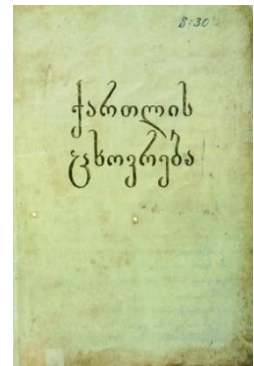 8-30
ქართლის
ცხოვრება